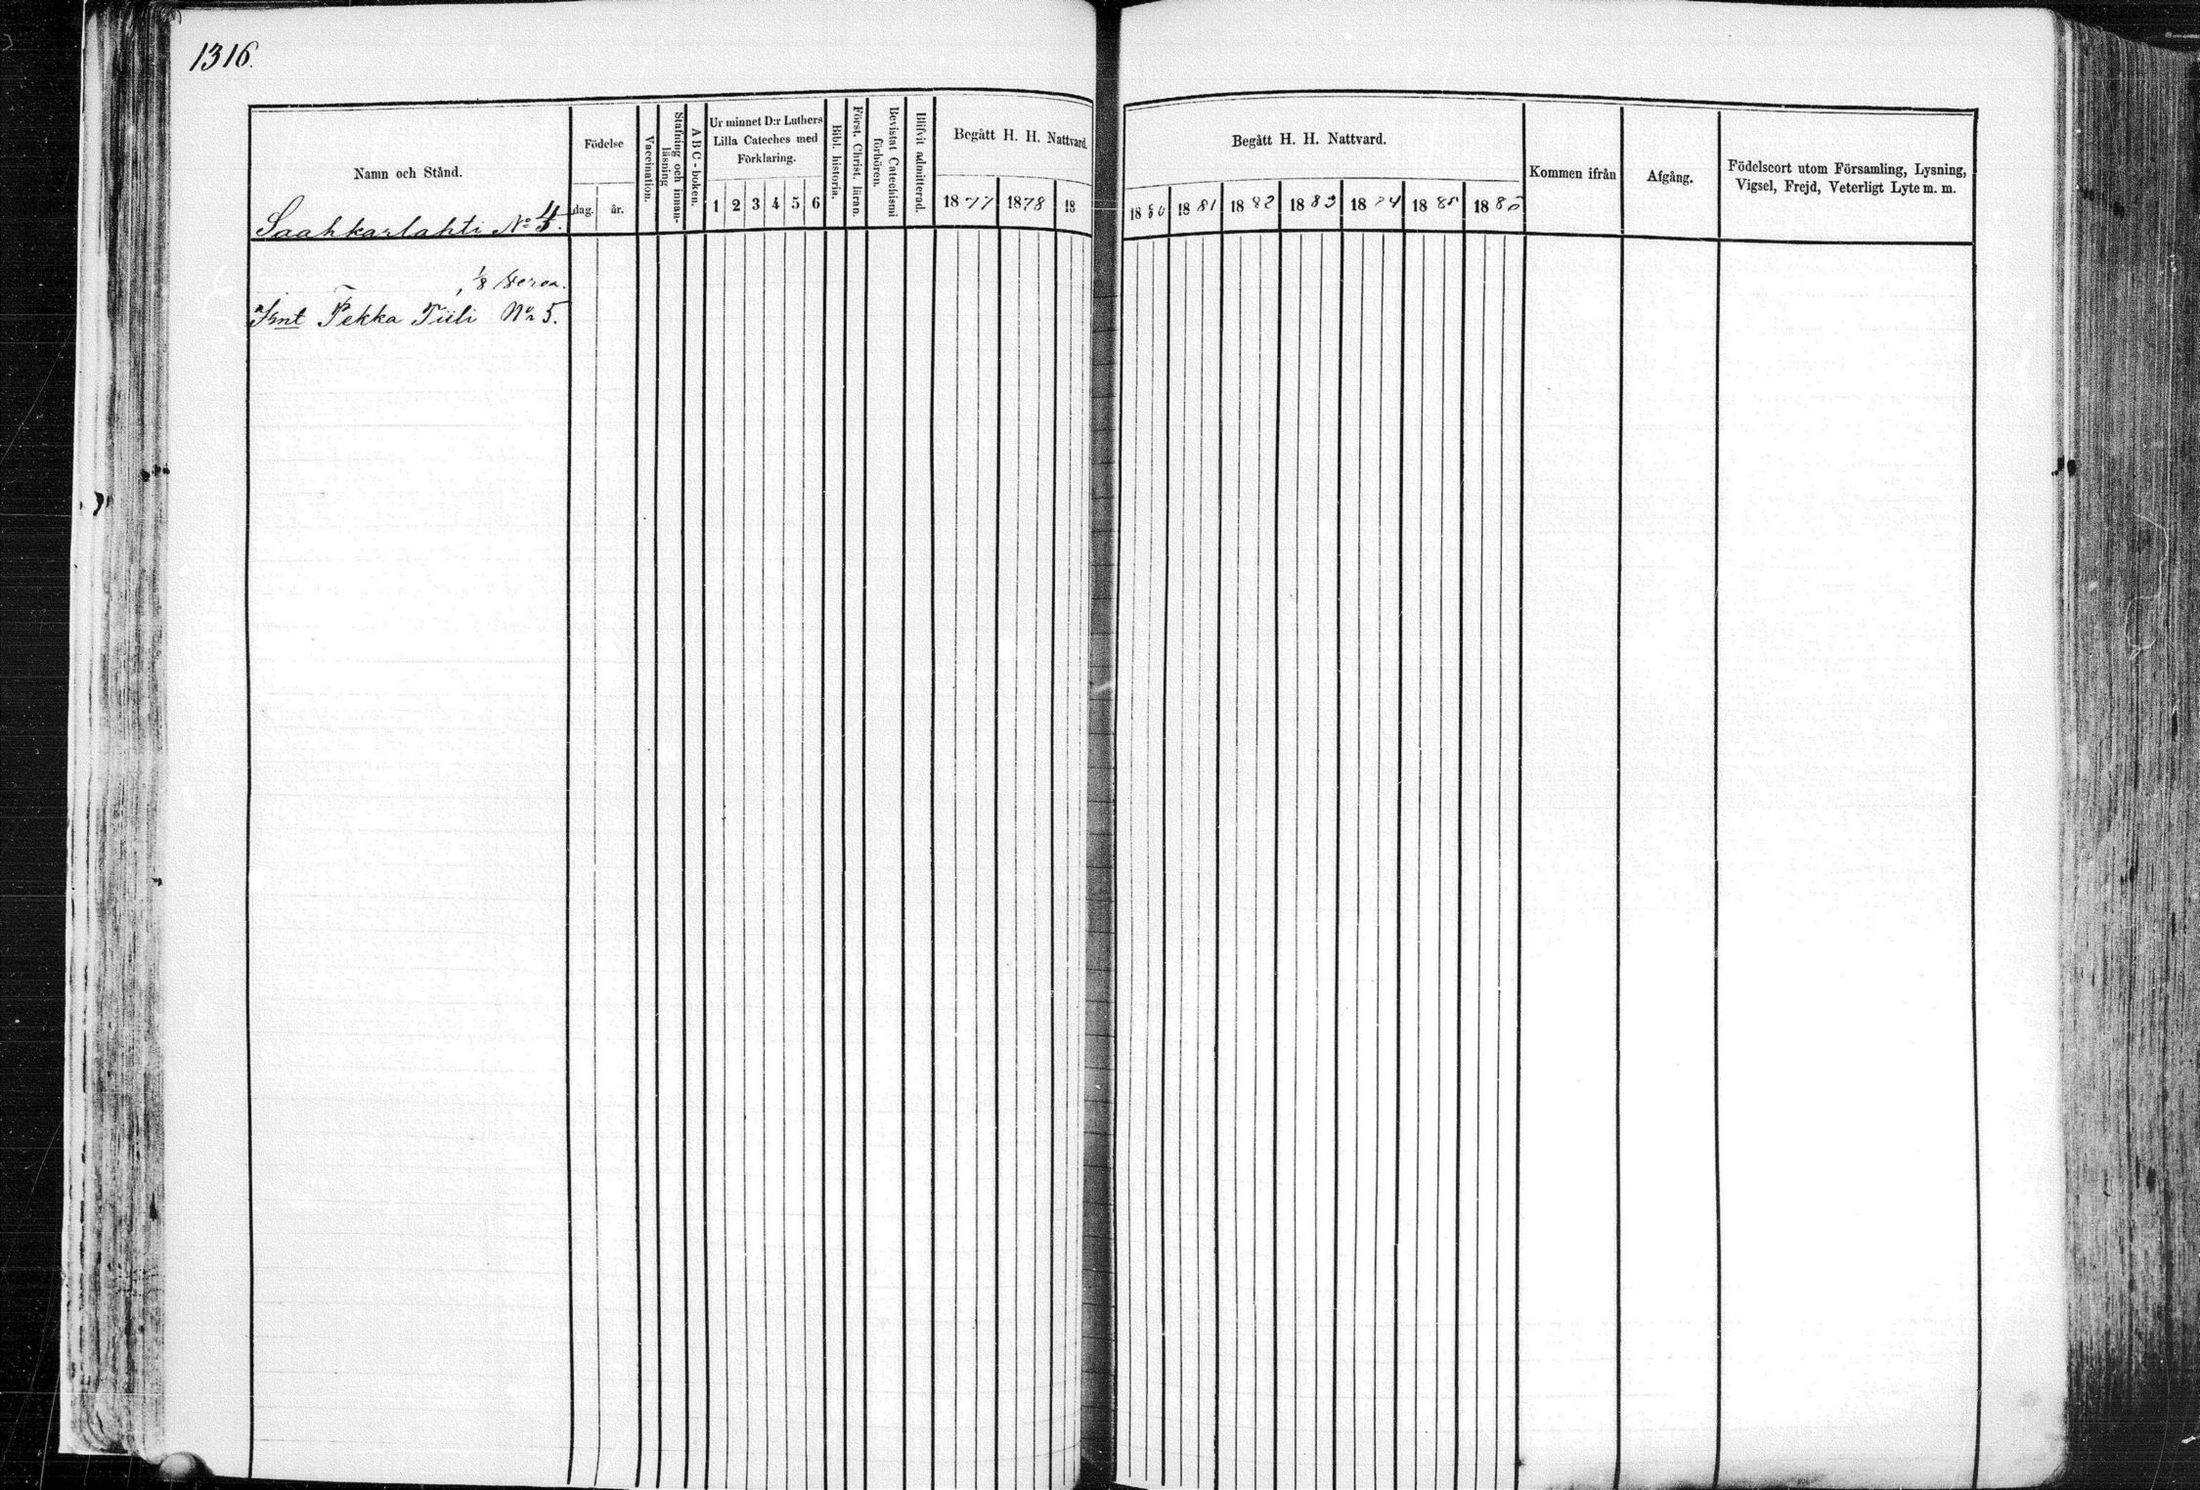 1316.
Namn och Stånd.
Saahkarlahti No 4.
Födelse
dag. år.
Vaccination.
Stafning och innan-
läsning
ABC-boken.
Ur minnet D:r Luthers
Lilla Cateches med
Förklaring.
1 2 3 4 5 6
Bibl. historia.
Först. Christ. läran.
Bevistat Catechismi
förhören.
Blifvit admitterad.
Begått H. H. Nattvard.
1877 1878 18
Begått H. H. Nattvard.
1880 1881 1882 1883 1884 1885 188
Kommen ifrån
Afgång.
Födelseort utom Församling, Lysning,
Vigsel, Frejd, Veterligt Lyte m. m.
1/8
Pekka Tiili No 5.